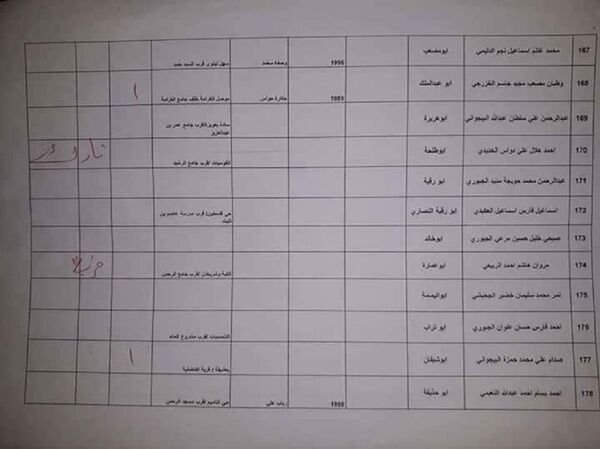 167 محمد غانم اسماعيل نجم الدليمي ابومصعب 1996 وصفه محمد سهل نينوى قرب السيد حمد
168 وطبان مصعب مجيد جاسم الخزرجي ابو عبدالملك 1989 جكارة عباس موصل الكرامة خلف جامع الكرامة ١
169 عبدالرحمن علي سلطان عبدالله البيجواني ابوهريرة سادة بعويزة/قرب جامع عمر بن
عبدالعزيز
170 احمد هلال علي دواس الحديدي ابوطلحة القوسيات /قرب جامع الرشيد تارك
171 عبدالرحمن محمد حويجة سنيد الجبوري ابو رقية
172 اسماعيل فارس اسماعيل العكيدي ابو رقية النصاري حي فلسطين/ قرب مدرسة عاصم بن
ثابت
173 صبحي خليل حسين مرعي الجبوري ابوخالد
174 مروان هاشم احمد الربيعي ابوعمارة الكبة وشريخان /قرب جامع الرحمن
175 نمر محمد سليمان خضير الجحيشي ابواليمامة
176 احمد فارس حسان علوان الجبوري ابو تراب الشمسيات /قرب مشروع الماء
177 صدام علي محمد حمزة البيجواني ابوشيفان بعشيقة / قرية الفاضلية ١
178 احمد بسام احمد عبدالله النعيمي ابو حذيفة 1998 رباب علي حي التاميم /قرب مسجد الرحمن